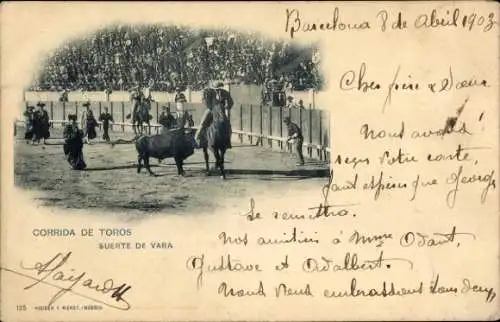 Barcelona 8 de Abril 1903
Cher père & Sœur
Nous avons
reçu votre carte,
tant espérés que Georges
Se remettra.
Nos amitiés à Mme Odant,
Gustave et Adalbert.
Nous vous embrassons tous deux
CORRIDA DE TOROS
SUERTE DE VARA
125 HAUSER Y MENET.-MADRID